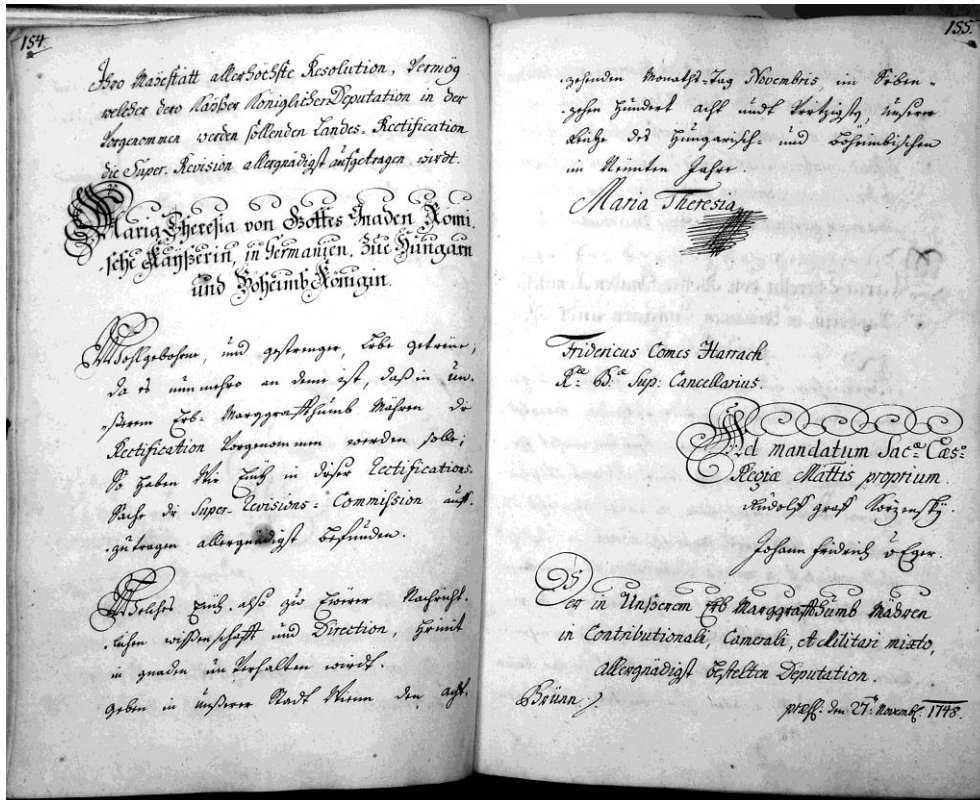 154.
Ihro Maÿestätt allerhöchste Resolution, Vermög
welcher dero Kaÿser Königlichen Deputation in der
Vorgenommen werden sollenden Landes-Rectification
die Super-Revision allergnädigst aufgetragen wirdt.
Maria Theresia von Gottes Gnaden Römi-
sche Kaÿßerin, in Germanien, Zue Hungarn
und Böheimb Königin.
Wohlgebohrne, und gestrenger, Liebe getreüe;
da es nunmehro an deme ist, daß in un-
ßerem Erb-Marggraffthumb Mähren die
Rectification Vorgenommen werden solle;
So haben Wir Eüch in dießer Rectifications-
Sache die Super-Revisions-Commission auf-
zutragen allergnädigst befunden.
Welches Eüch also zu Eürer Nachricht-
lichen wißenschafft und Direction, hiemit
in gnaden Verhalten wirdt.
geben in unßerer Stadt Wienn den acht-
155.
zehenden Monaths-Tag Novembris, im Siben-
zehen hundert acht undt Viertzigsten, Unserer
Reiche des Hungarisch- und Böheimbischen
im Neünten Jahre.
Maria Theresia
Fridericus Comes Harrach
Ræ. Bæ. Sup: Cancellarius.
Ad mandatum Sacæ Cæsæ
Regiæ Mattis proprium.
Rudolff graff Korzensky.
Johann Fridrich v Eger.
Der in Unßerem Erb Marggraffthumb Mähren
in Contributionali, Camerali, et Militari mixto,
allergnädigst bestelten Deputation.
Brünn
præs: den 27: Novemb: 1748.